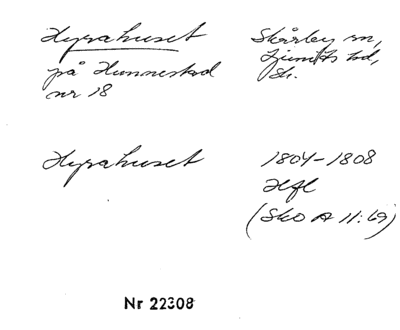 Hyrahuset
på Hunnestad
nr 18
Skårby sn,
Ljunits hd,
Sk.
Hyrahuset
1804-1808
Hfl
(Sko A 11:69)
Nr 22308